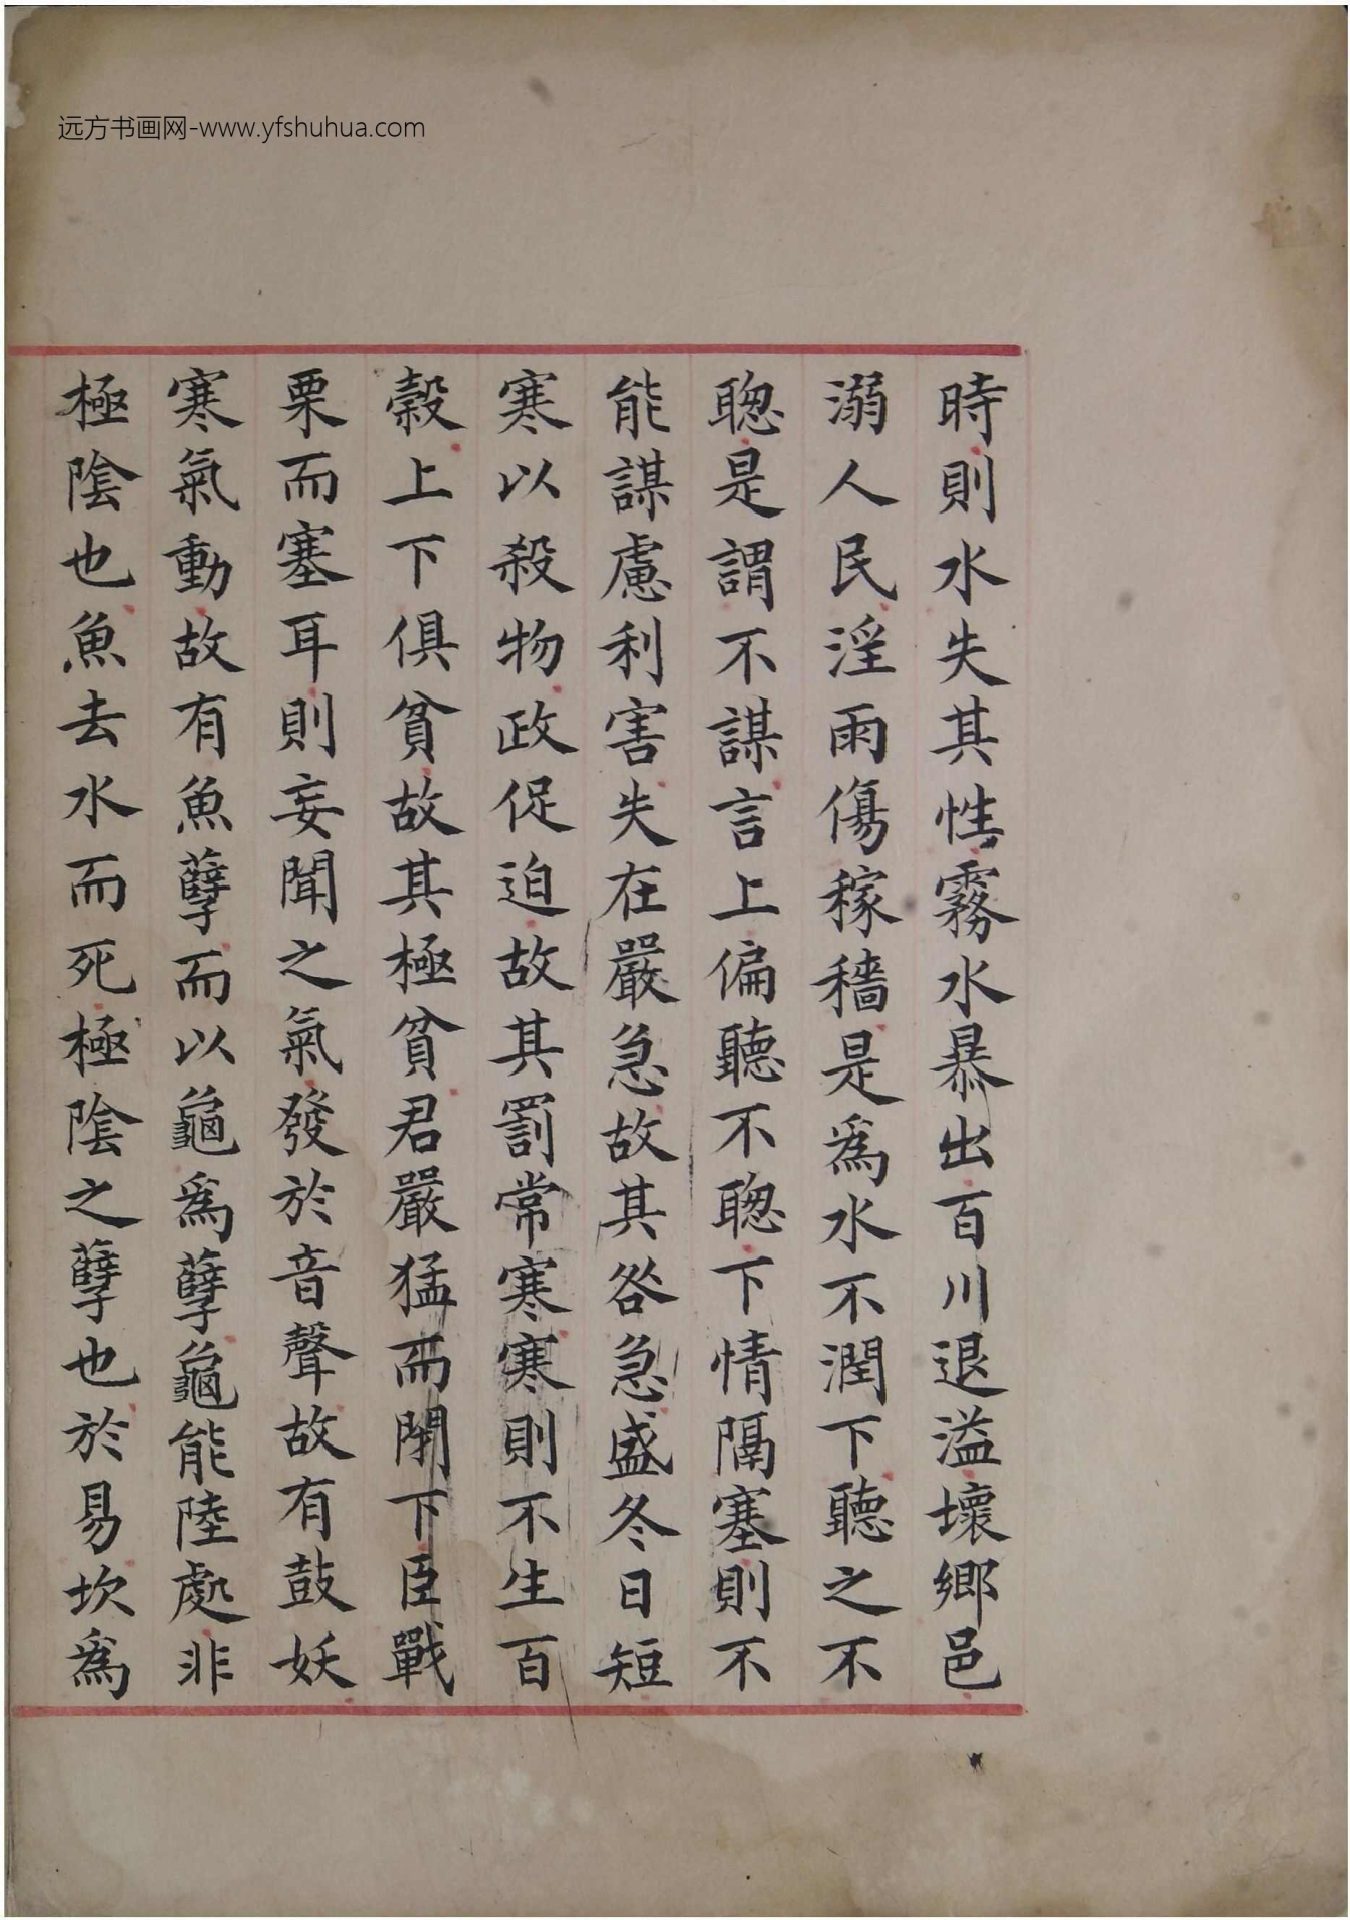 远方书画网-www.yfshuhua.com
時則水失其性霧水暴出百川退溢壞鄉邑
溺人民淫雨傷稼穡是為水不潤下聽之不
聦是謂不謀言上偏聽不聦下情隔塞則不
能謀慮利害失在嚴急故其咎急盛冬日短
寒以殺物政促迫故其罰常寒寒則不生百
穀上下俱貧故其極貧君嚴猛而閉下臣戰
栗而塞耳則妄聞之氣發於音聲故有鼓妖
寒氣動故有魚孽而以龜為孽龜能陸處非
極陰也魚去水而死極陰之孽也於易坎為